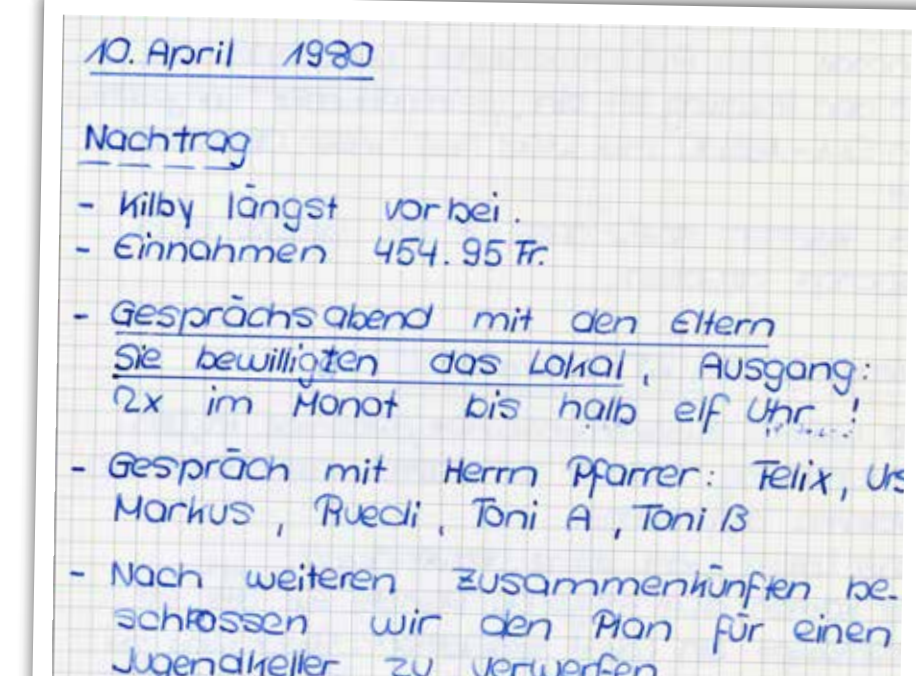 10. April 1980
Nachtrag
- Kilby längst vorbei.
- Einnahmen 454.95 Fr.
- Gesprächsabend mit den Eltern
Sie bewilligten das Lokal, Ausgang:
2x im Monat bis halb elf Uhr !
- Gespräch mit Herrn Pfarrer: Felix, Urs
Markus, Ruedi, Toni A, Toni B
- Nach weiteren Zusammenkünften be-
schlossen wir den Plan für einen
Jugendkeller zu verwerfen